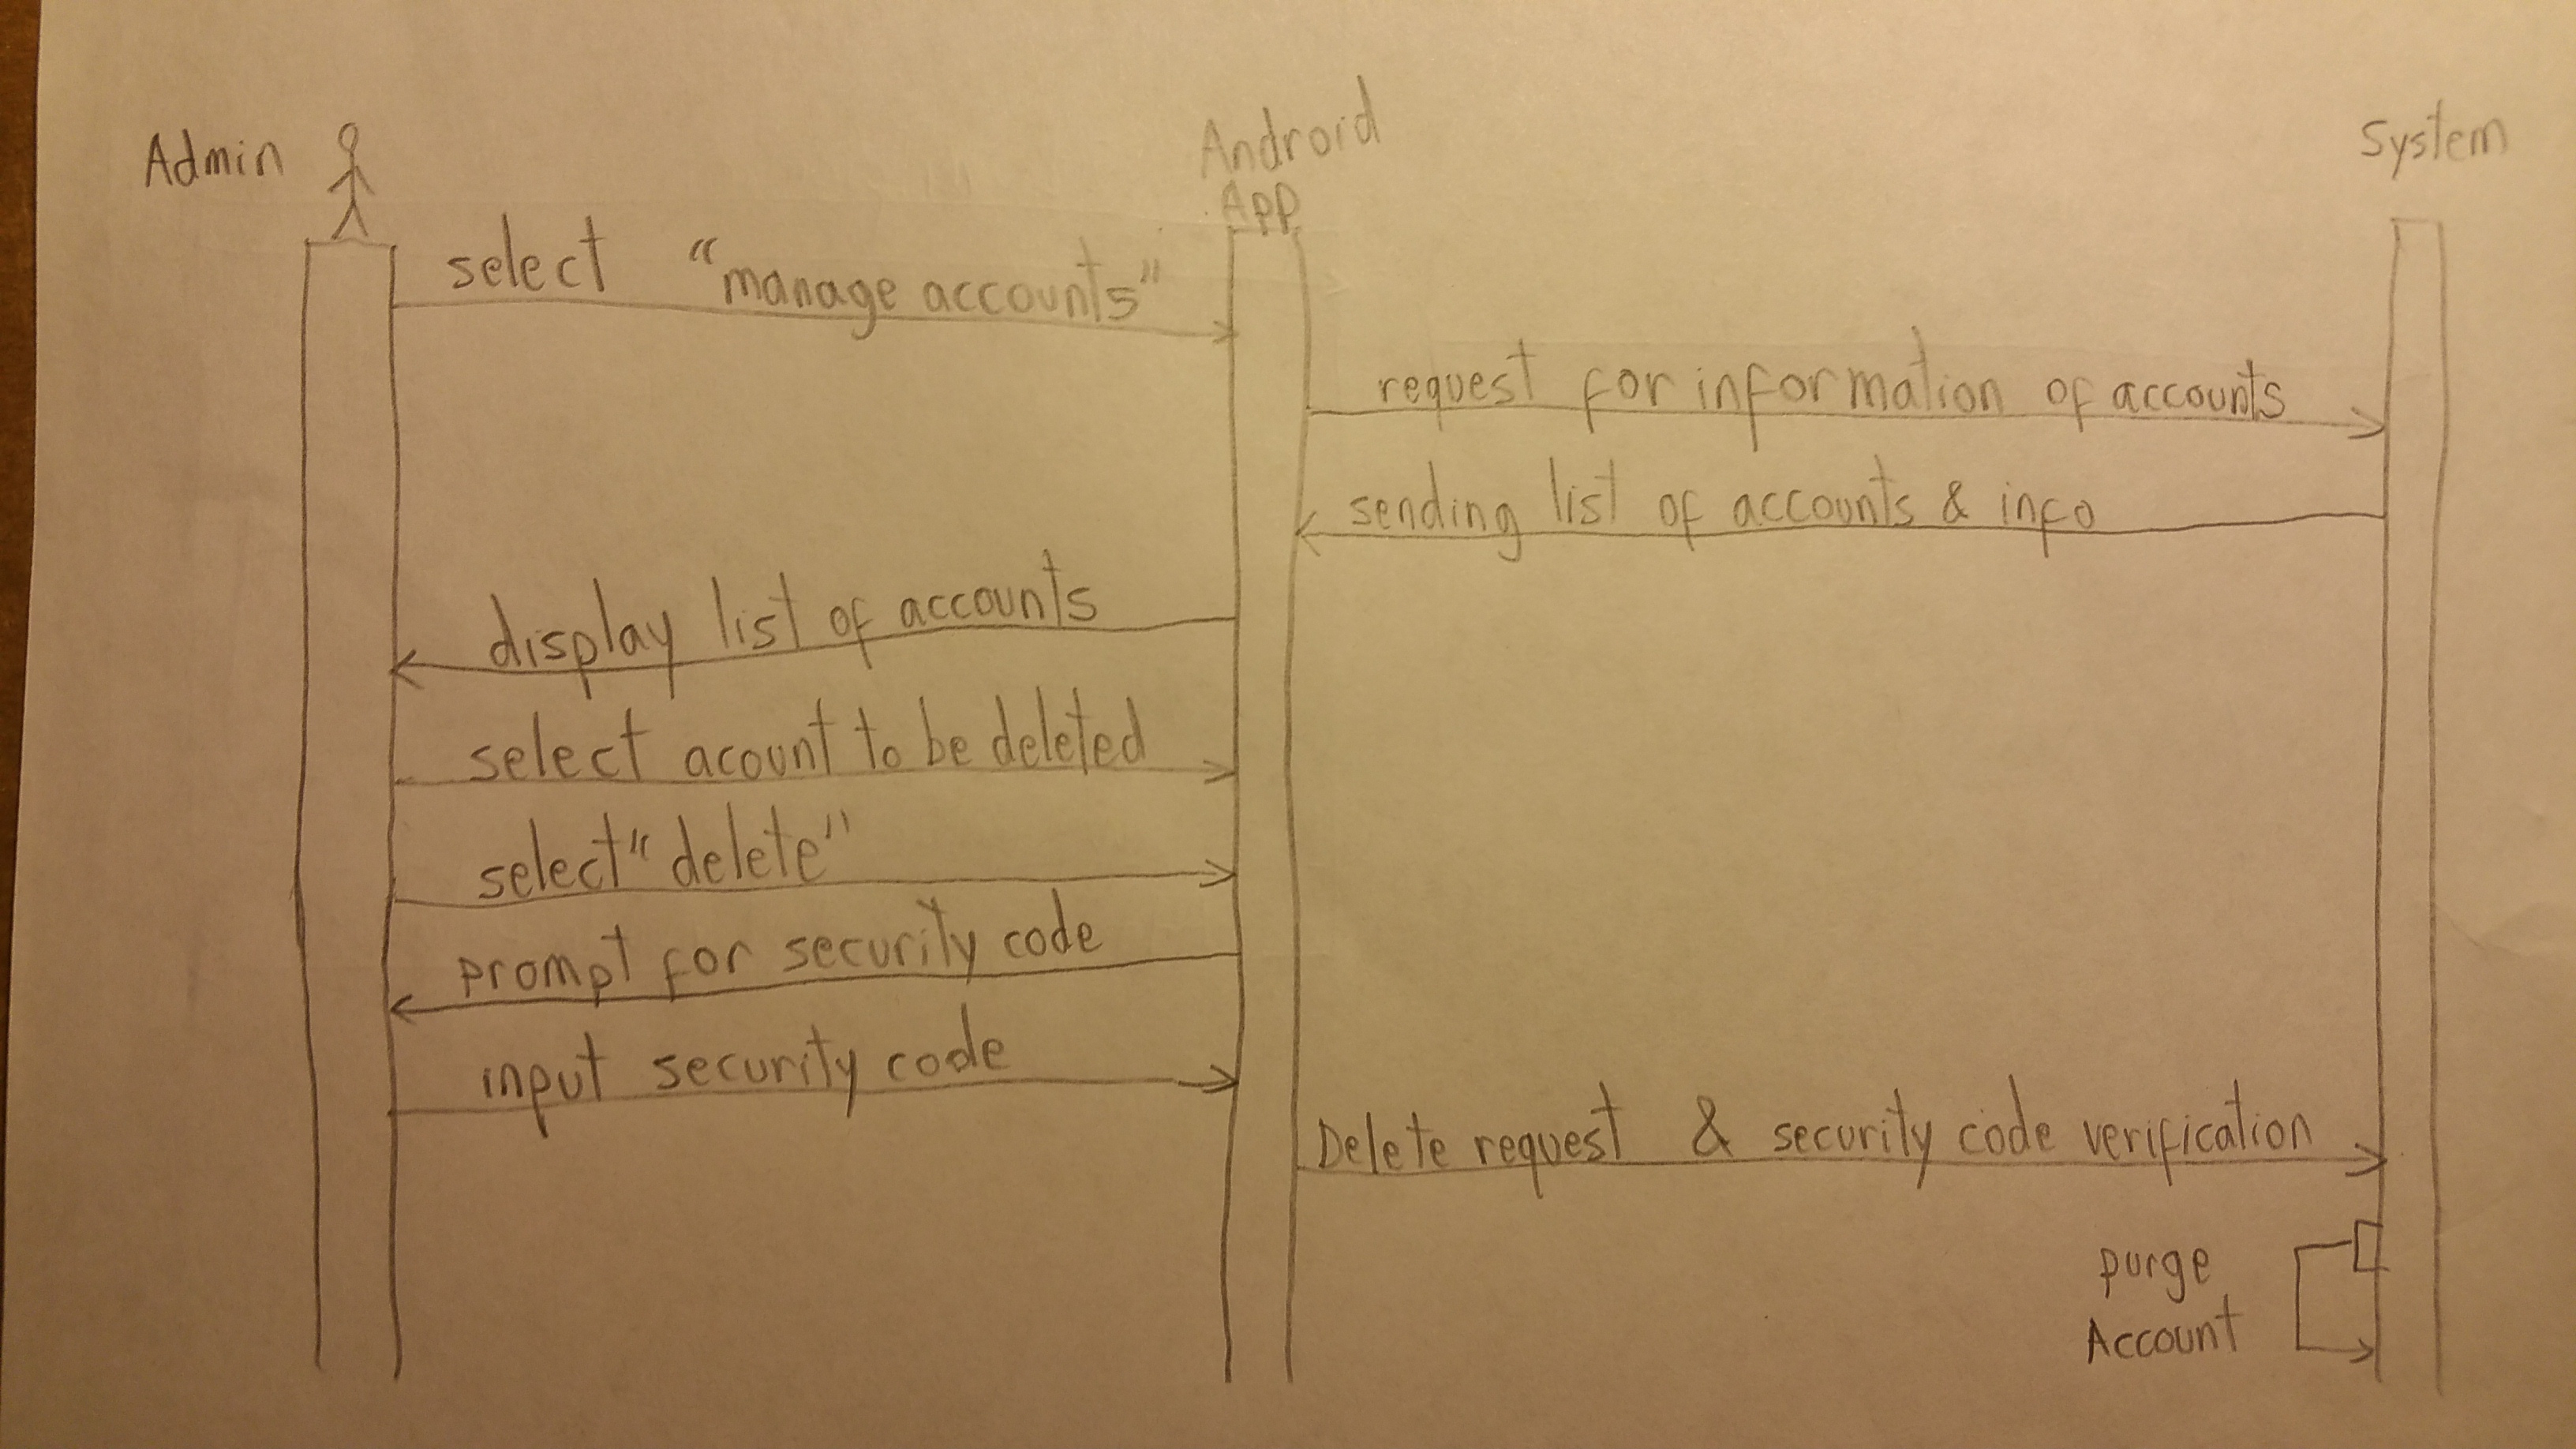 Admin
Android
App
System
select "manage accounts"
request for information of accounts
sending list of accounts & info
display list of accounts
select acount to be deleted
select "delete"
prompt for security code
input security code
Delete request & security code verification
purge
Account